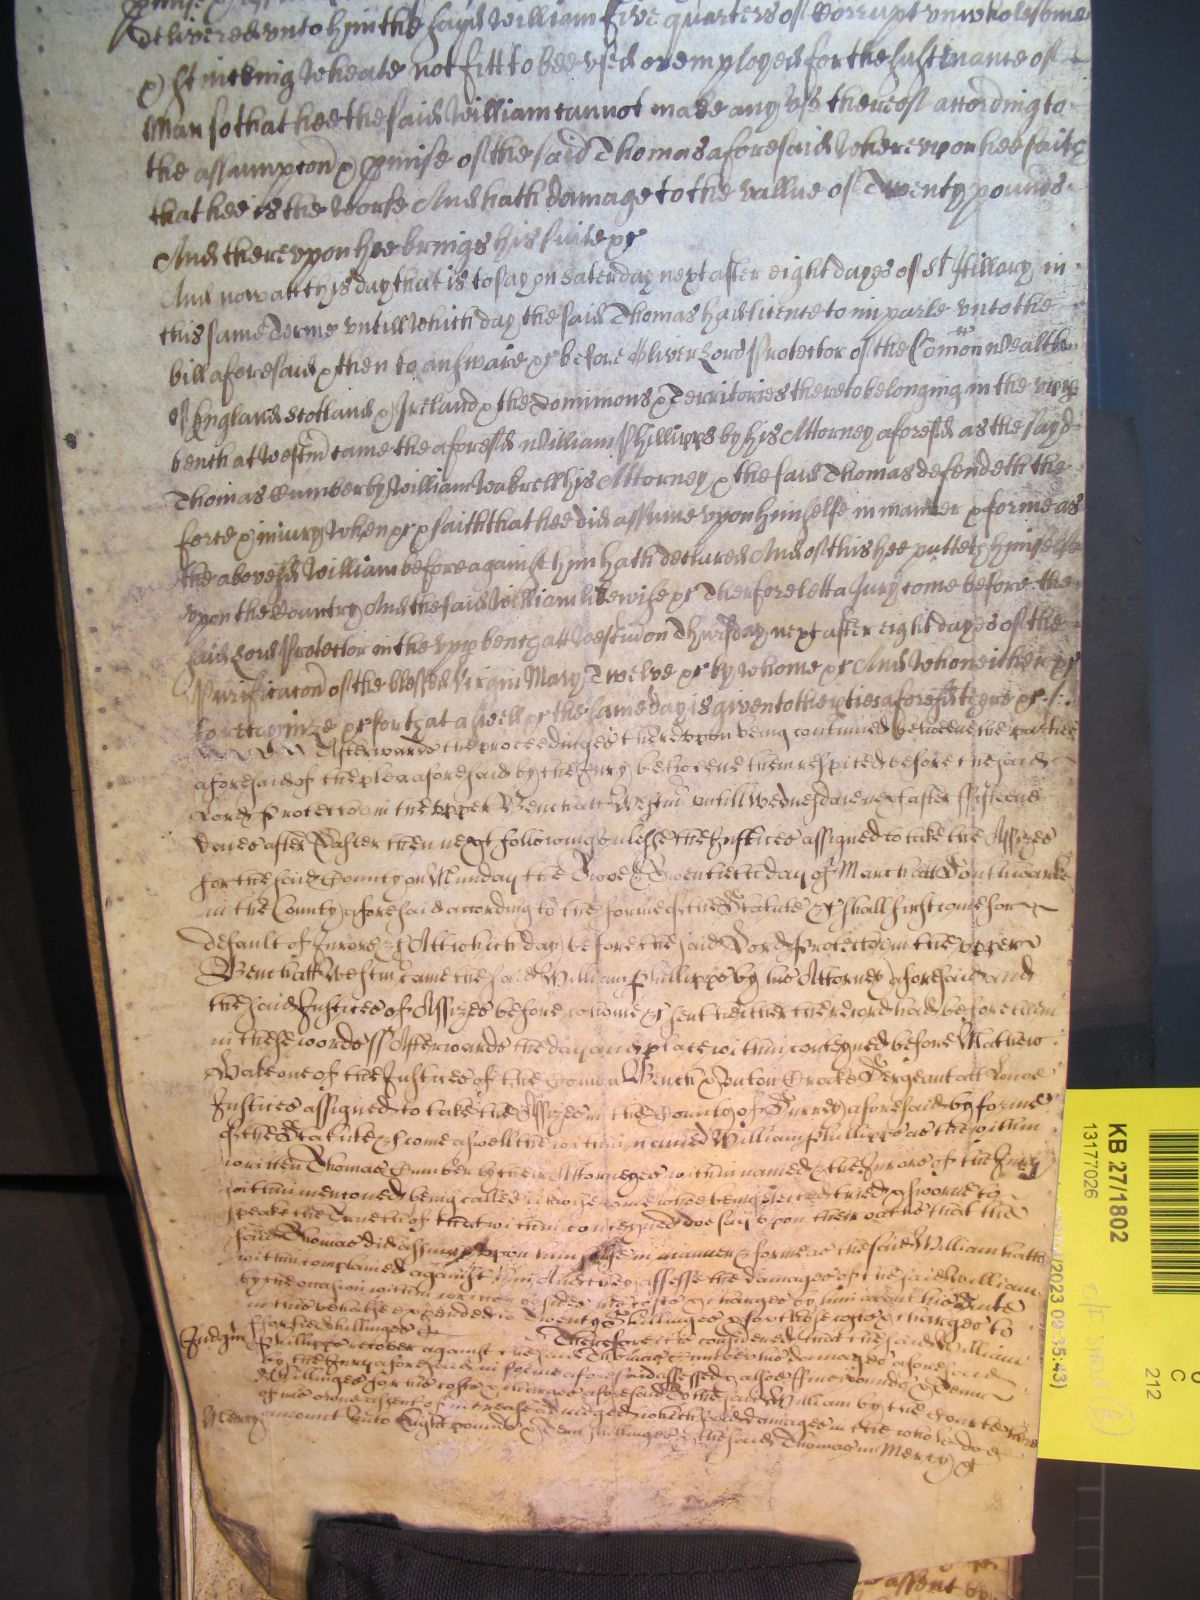 delivered unto him the said William five quarters of Corrupt unwholesome
& stincking Wheate not fitt to bee used or employed for the sustinance of
Man so that hee the said William cannot make any use thereof according to
the assumpcon & pmise of the said Thomas aforesaid Whereupon hee saith
that hee is the Worse And hath damage to the vallue of Twenty pounds
And thereupon hee brings his suite &c
And now att this day that is to say on Saterday next after eight dayes of St Hillary in
this same Terme untill Which day the said Thomas had licence to imparle unto the
bill aforesaid & then to answare &c before Oliver Lord Protector of the Comon Wealth
of England Scotland & Ireland & the Dominions & Territories thereto belonging in the upp
bench at Westm came the aforesd William Phillipps by his Attorney aforesd as the sayd
Thomas Cumber by William his Attorney & the said Thomas defendeth the
force & injury When &c & saith that hee did assume upon himselfe in manner & forme as
the abovesd William before against him hath declared And of this hee putteth himselfe
upon the Country And the said William likewise &c Therefore lett a Jury come before the
said Lord Protector in the upp bench att Westm on Thursday next after eight dayes of the
Purificacon of the blessed Virgin Mary Twelve &c by Whome &c And Who neither &c
to recognize &c for that aswell &c the same day is given to the pties aforesd there &c
Afterwards the proceedinges thereupon being continued betweene the parties
aforesaid of the plea aforesaid by the Jury betweene them respited before the said
Lord Protector in the upper Bench att Westm untill Wednesdaie next after fifteene
dayes after Easter then next following unlesse the Justices assigned to take the Assizes
for the said County on Munday the Twoe & Twentieth day of March att Southwarke
in the County aforesaid according to the forme of the Statute &c shall first come for
default of Jurors &c Att which day before the said Lord Protector in the upper
Bench att Westm came the said William Phillipps by his Attorney aforesaid and
the said Justices of Assizes before whome &c sent hither the record had before them
in these words ss Afterwards the day and place within conteyned before Mathew
Hale one of the Justices of the Comon Bench & Unton Croake Sergeant att Lawe
Justices assigned to take the Assizes in the County of Surrey aforesaid by forme
of the Statute &c come aswell the within named William Phillipps as the within
written Thomas Cumber by their Attorneyes within named & the Jurors of the Jury
within menconed being called likewise come whoe being elected tried & sworne to
speake the Trueth of that within conteyned doe say upon their oathes that the
said Thomas did assume upon himselfe in manner & forme as the said William hath
within complained against him And they assesse the damages of the said William
by the occasion within written besides his costs & charges by him about his suite
in this behalfe expended to Twenty Shillinges & for those costs & charges to
Judgm
Therefore it is considered that the said William
Phillipps recover against the said Thomas Cumber his damages aforesaid
by the Jury aforesaid in forme aforesaid assessed & alsoe pounds & Tenn
Shillinges for his costs & charges aforesaid to the said William by the Courte here
of his owne assent of increase adjudged which said damages in the whole doe
Mercy
amount unto Eight pounds & Tenn Shillinges & the said Thomas in Mercy &c
KB 27/1802
13177026
2023 09:35:43)
C
212
assent